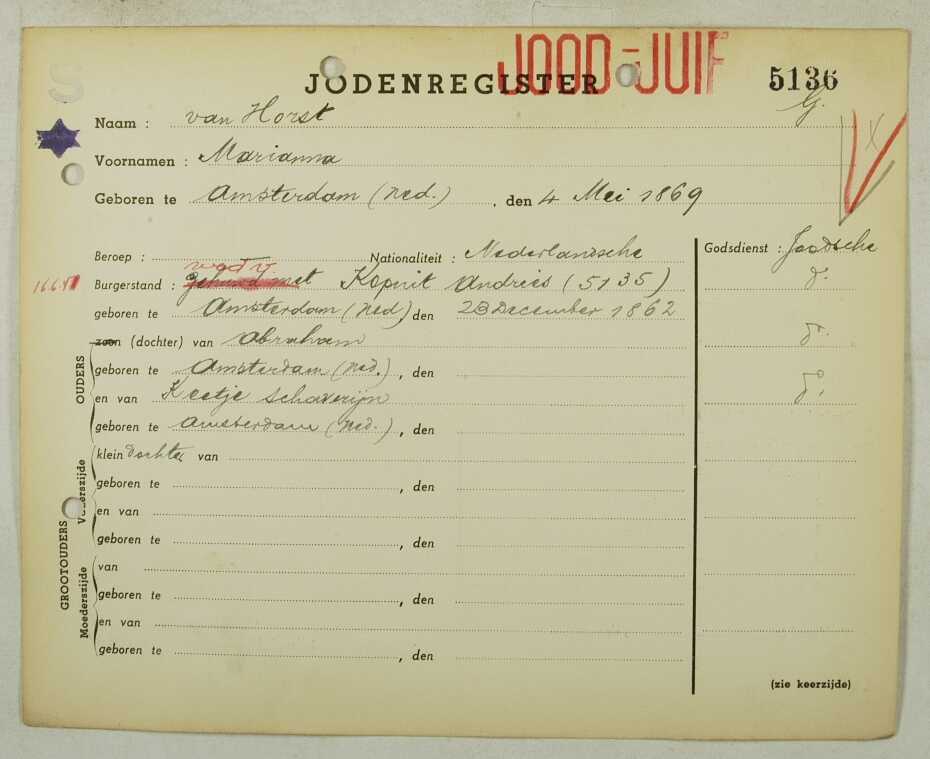 JOOD-JUIF
JODENREGISTER 5136
G.
Naam : van Horst
Voornamen : Marianna
Geboren te Amsterdam (Ned.) , den 4 Mei 1869
Beroep : Nationaliteit : Nederlandsche Godsdienst : Joodsche
wed v.
Burgerstand : gehuwd met Kopuit Andries (5135) d°
geboren te Amsterdam (Ned) den 23 December 1862
OUDERS
zoon (dochter) van Abraham d°
geboren te Amsterdam (Ned.) , den
en van Keetje Schaverijn d°
geboren te Amsterdam (Ned.) , den
GROOTOUDERS
Vaderszijde
klein dochter van
geboren te , den
en van
geboren te , den
Moederszijde
van
geboren te , den
en van
geboren te , den
(zie keerzijde)